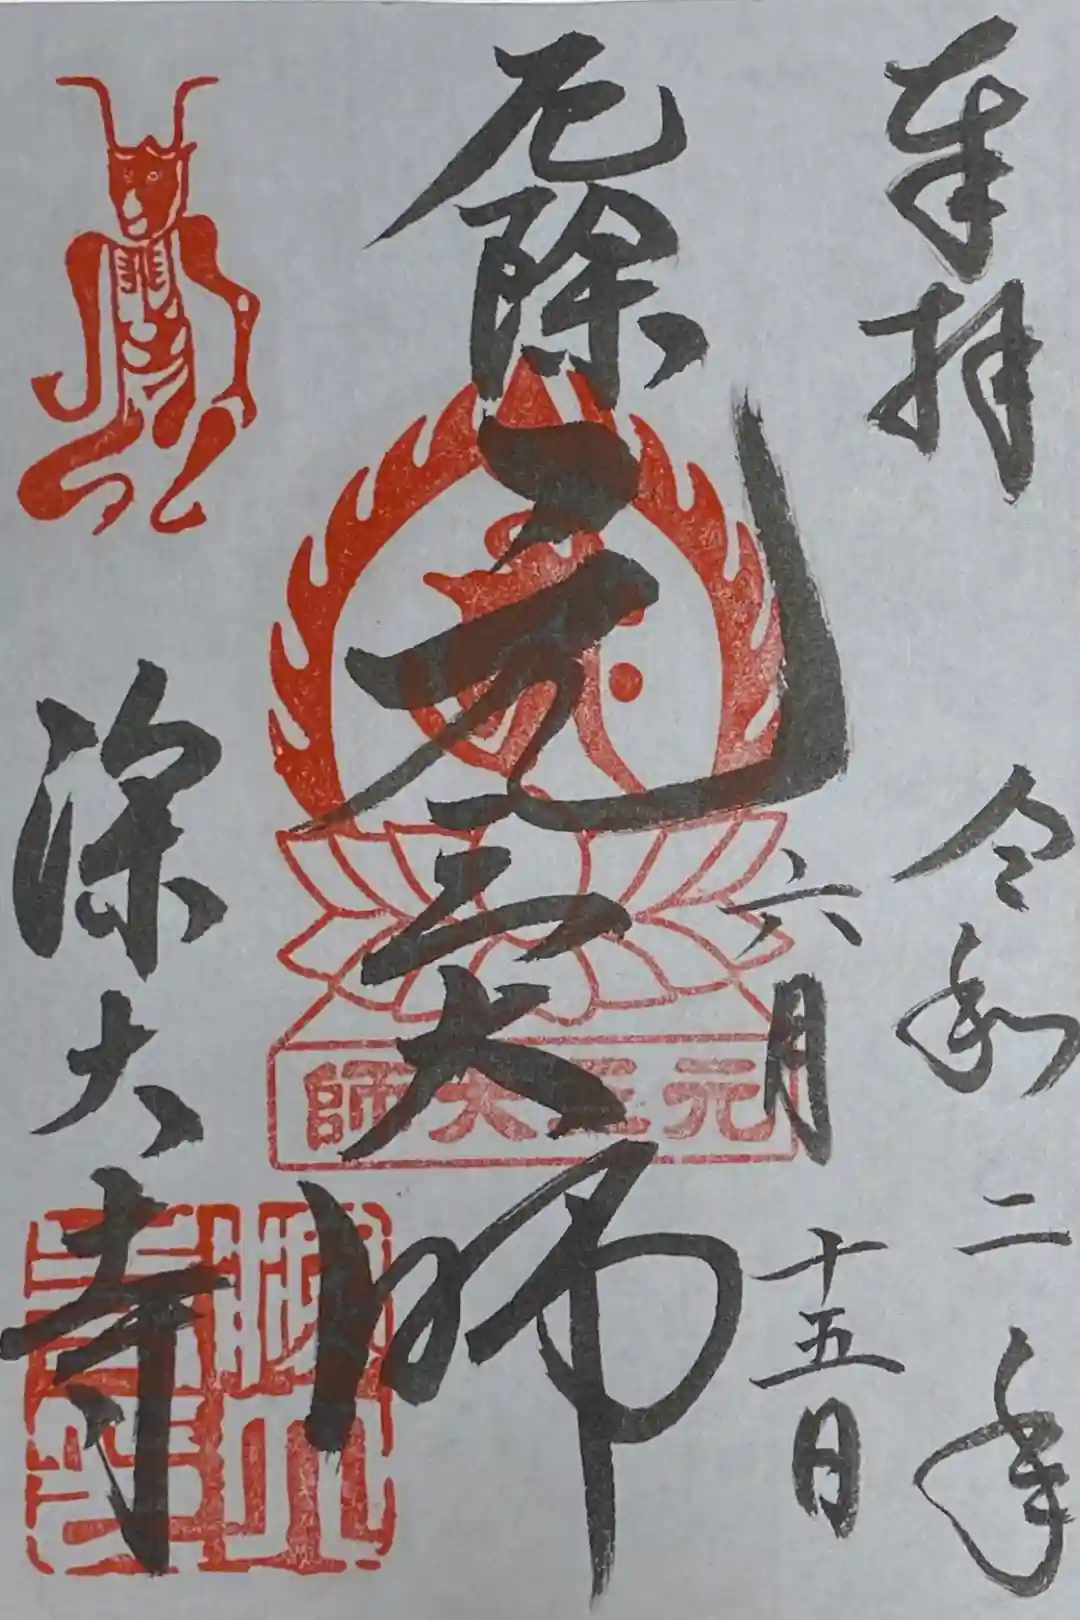 奉拝
令和二年
六月十五日
厄除元三大師
元三大師
深大寺